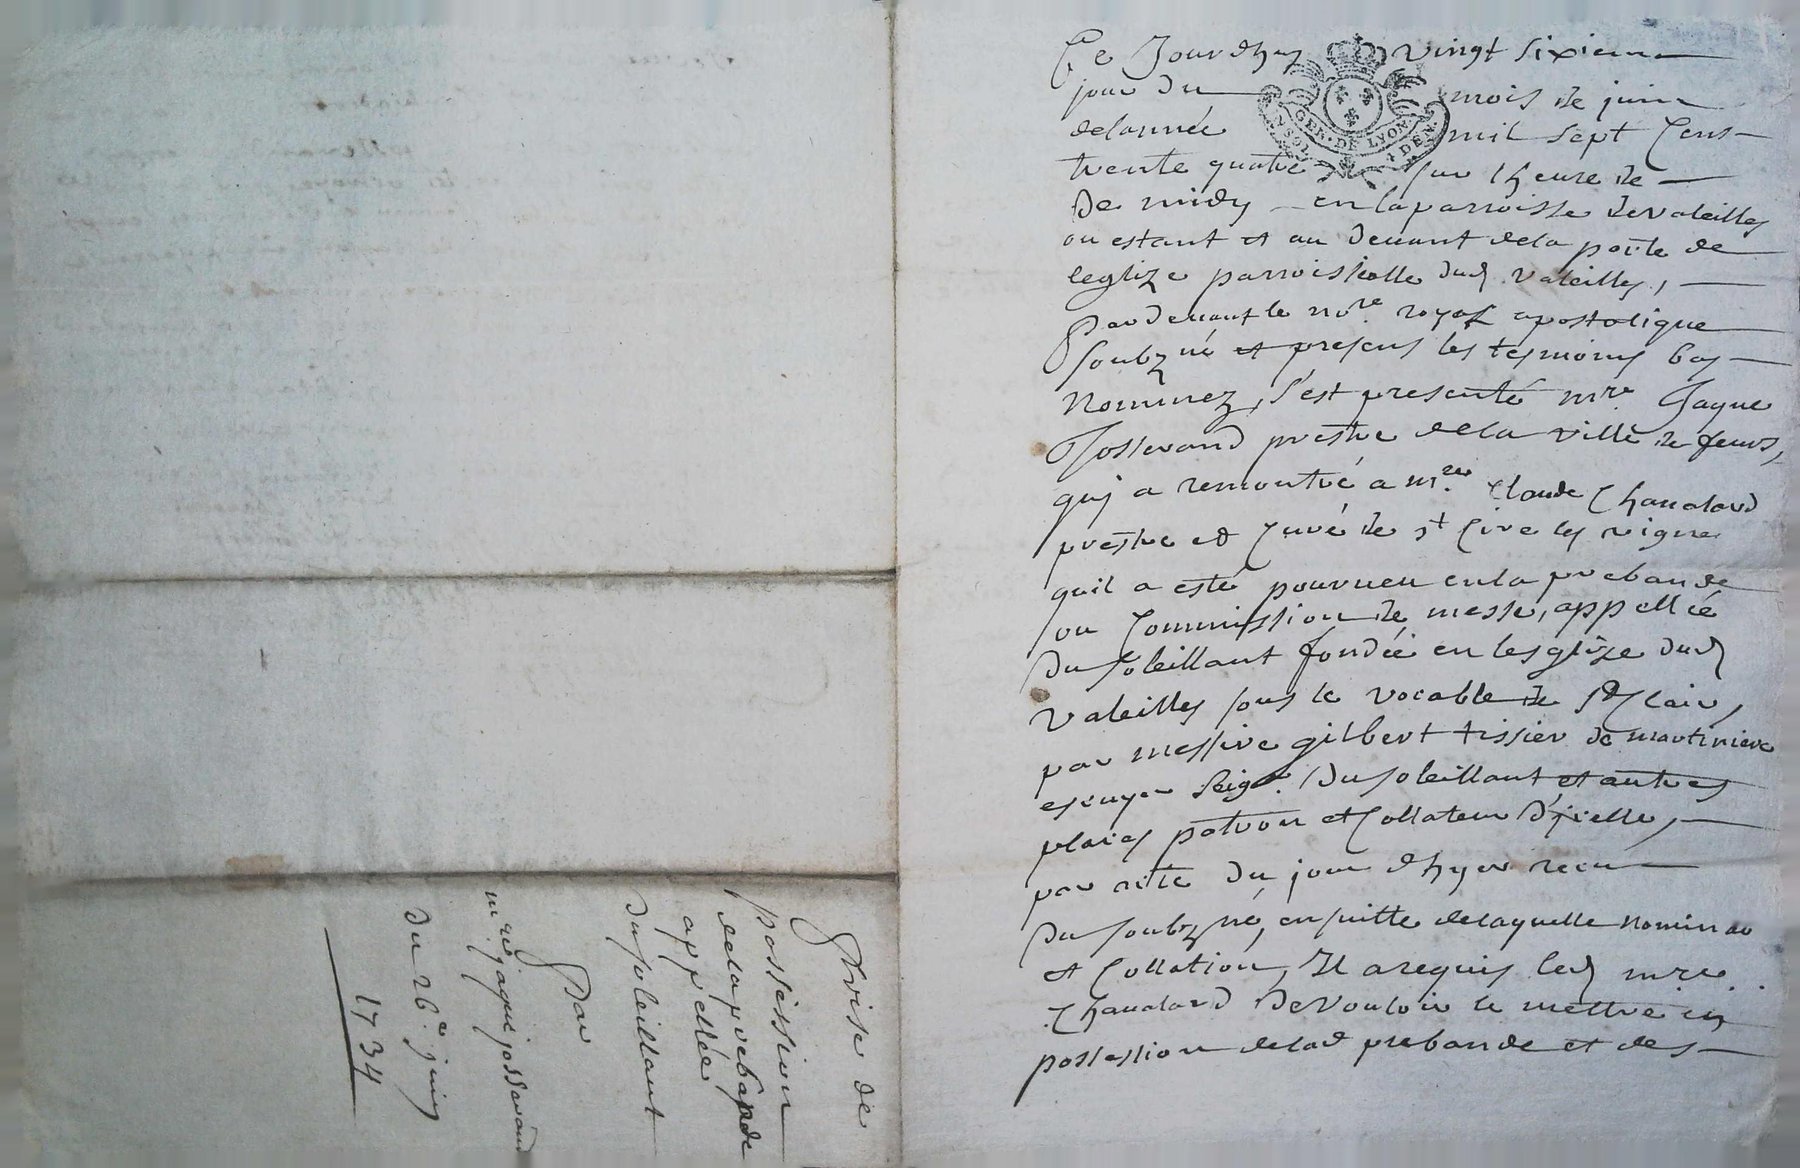 Ce Jourdhuy vingt sixieme
jour du mois de juin
delannée mil sept Cens
trente quatre sur lheure de
de midy en la parroisse de valeilles
ou estant et au devant dela porte de
leglize parroissialle dud valeilles,
Pardevant le nore royal apostolique
soubzné et presens les tesmoins bas
Nommez, s'est presenté mre Jaque
Josserand prestre dela ville de feurs,
quj a remontré a mre Claude Chanalard
prestre et Curé de st Cire les vigne
quil a esté pourveu en la prebande
ou Commission de messe, appellée
du soleillant fondée en lesglize dud
valeilles sous le vocable de St Clair,
par messire gilbert tissier de martiniere
escuyer seigr. du soleillant et autres
places patron et Collateur d'jcelle,
par acte du jour dhyer receu
du soubzné, en suitte delaquelle nominaon
et Collation, Il a requis led mre
Chanalard de vouloir le mettre en
possession delad prebande et des
GEN. DE LYON
2 SOLS 4 DEN.
Prise de
possession
delaprebande
appellée
du soleillant
Par
mre jaque josserand
du 26e juin
1734